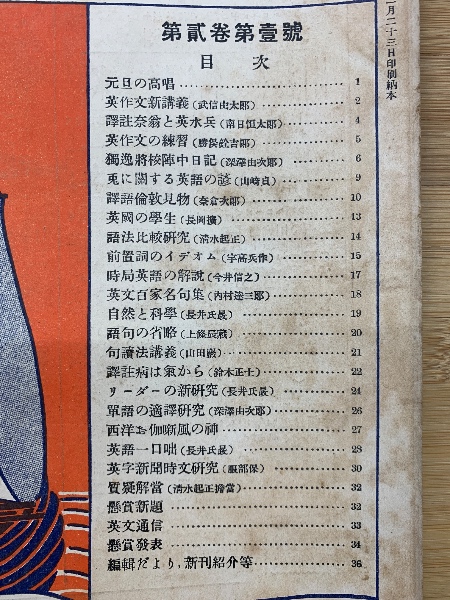 第貳卷第壹號
目次
元旦の高唱 1
英作文新講義(武信由太郎) 2
譯註奈翁と英水兵(南日恒太郎) 4
英作文の練習(勝俣銓吉郎) 5
獨逸將校陣中日記(深澤由次郎) 6
兎に關する英語の諺(山崎貞) 9
譯語倫敦見物(奈倉次郎) 10
英國の學生(長岡擴) 13
語法比較研究(清水起正) 14
前置詞のイデオム(宇高兵作) 15
時局英語の解説(今井信之) 17
英文百家名句集(内村達三郎) 18
自然と科學(長井氏晸) 19
語句の省略(上條辰藏) 20
句讀法講義(山田巖) 21
譯註病は氣から(鈴木正士) 22
リーダーの新研究(長井氏晸) 24
單語の適譯研究(深澤由次郎) 26
西洋お伽噺風の神 27
英語一口咄(長井氏晸) 28
英字新聞時文研究(服部保) 30
質疑解當(清水起正擔當) 32
懸賞新題 32
英文通信 33
懸賞發表 34
編輯だより,新刊紹介等 36
月二十三日印刷納本